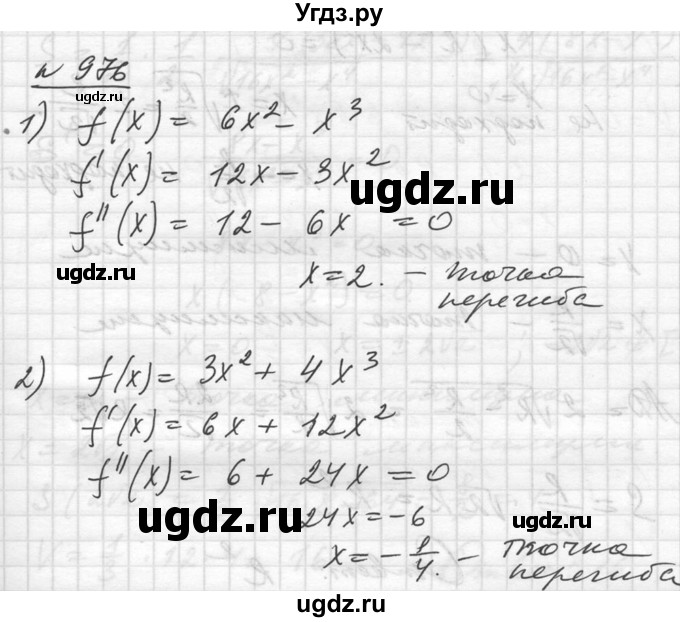 Угдз.ру
N 976
ugdz.ru
1) f(x) = 6x² - x³
f'(x) = 12x - 3x²
ugdz.ru
f''(x) = 12 - 6x = 0
ugdz.ru
x = 2. - точка
перегиба
2) f(x) = 3x² + 4x³
f'(x) = 6x + 12x²
f''(x) = 6 + 24x = 0
ugdz.ru
24x = -6
ugdz.ru
x = -1/4. - точка
перегиба
ugdz.ru